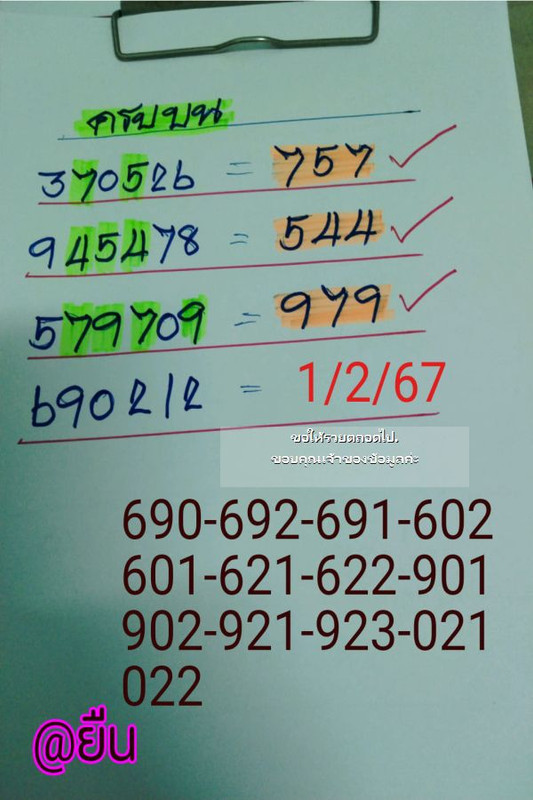 ครบบน
370526 = 757
945478 = 544
579709 = 979
690212 = 1/2/67
ขอให้รวยตลอดไป.
ขอบคุณเจ้าของข้อมูลค่ะ
690-692-691-602
601-621-622-901
902-921-923-021
022
@ยืน